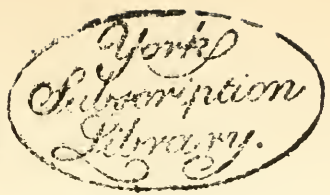 York
Subscription
Library.